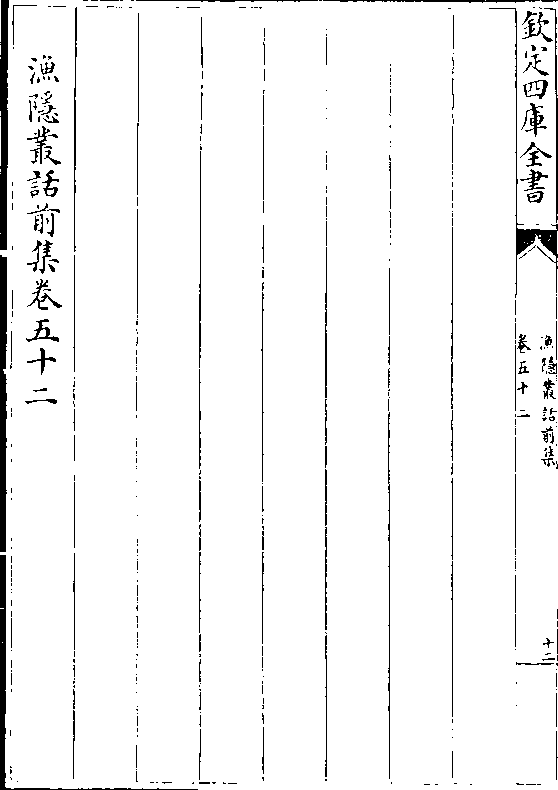 欽定四庫全書
漁隱叢話前集
卷五十二
十二
漁隱叢話前集卷五十二